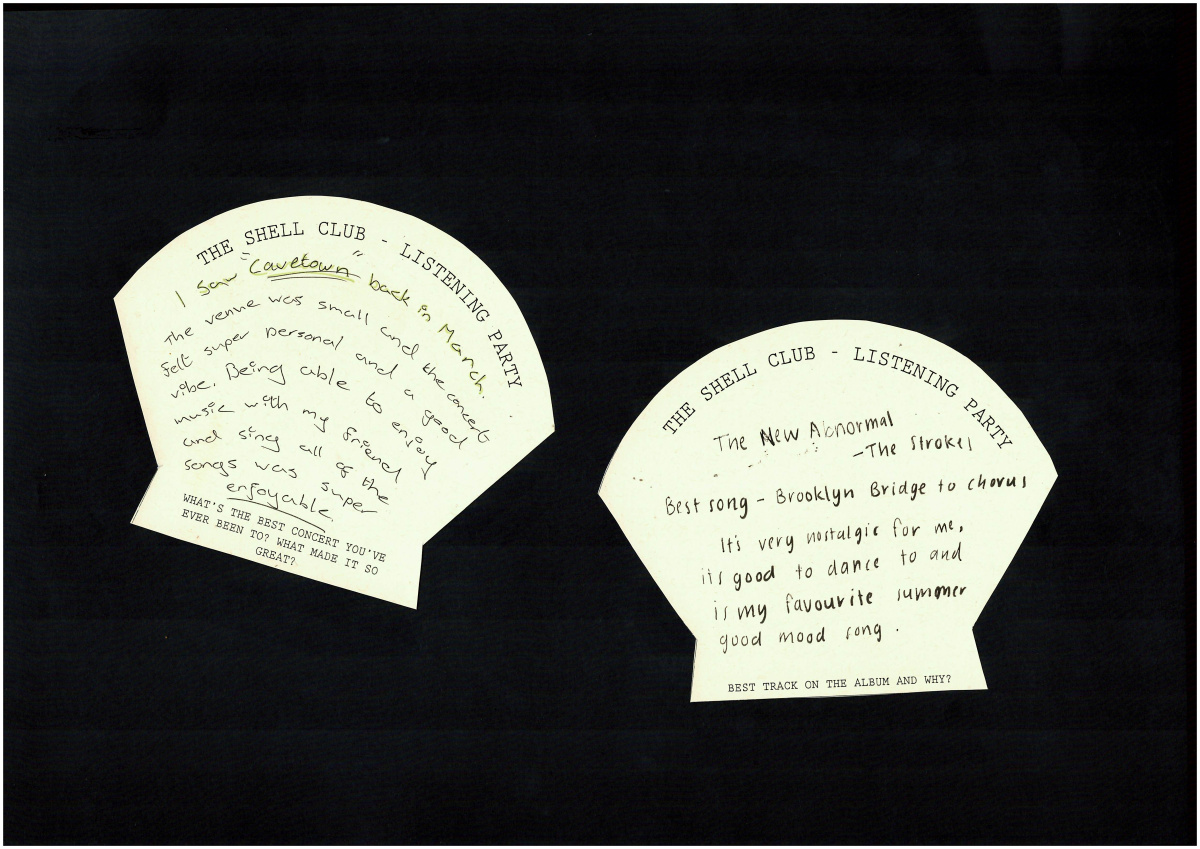 THE SHELL CLUB - LISTENING PARTY
I saw "Cavetown" back in March.
The venue was small and the concert
felt super personal and a good
vibe. Being able to enjoy
music with my friend
and sing all of the
songs was super
enjoyable.
WHAT'S THE BEST CONCERT YOU'VE
EVER BEEN TO? WHAT MADE IT SO
GREAT?
THE SHELL CLUB - LISTENING PARTY
The New Abnormal
-The Strokes
Best song - Brooklyn Bridge to chorus
It's very nostalgic for me,
its good to dance to and
is my favourite summer
good mood song.
BEST TRACK ON THE ALBUM AND WHY?